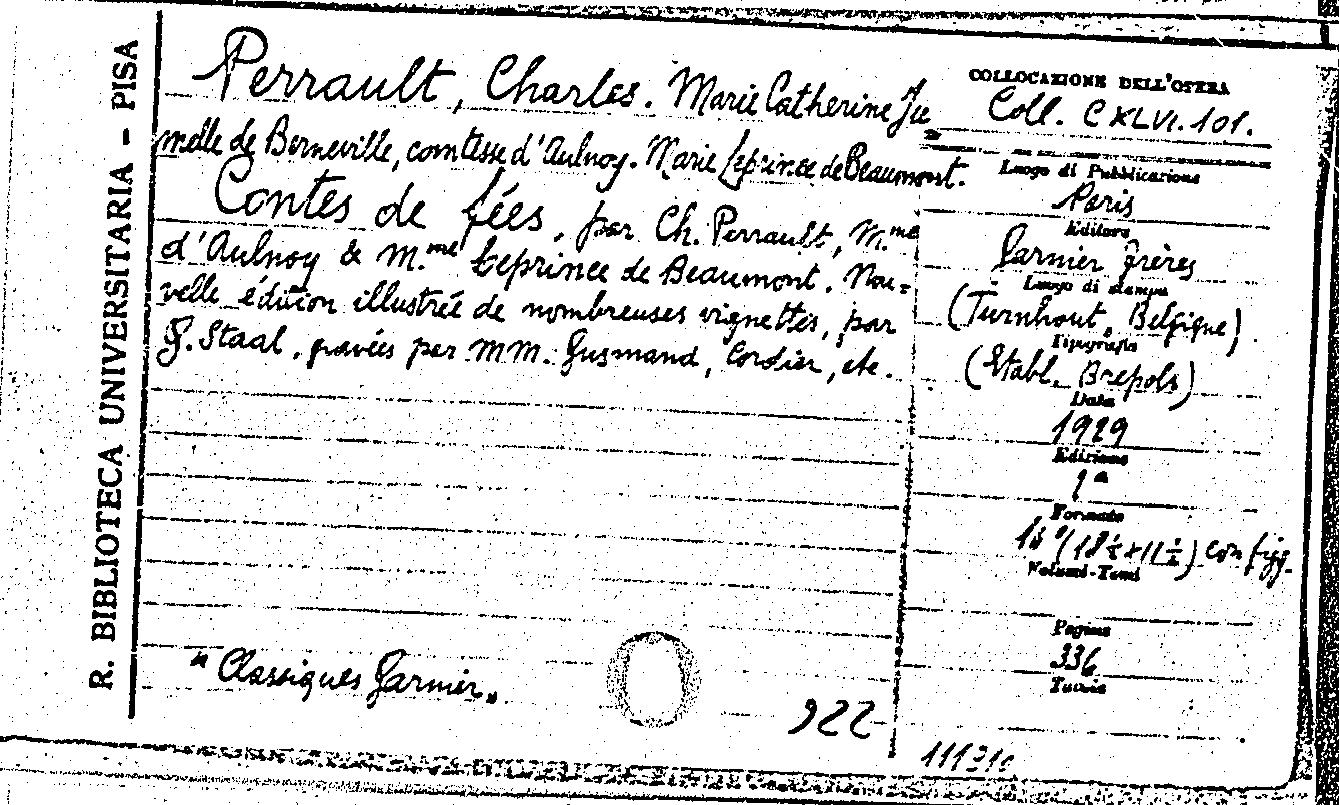 R. BIBLIOTECA UNIVERSITARIA - PISA
Perrault, Charles. Marie Catherine Ju=
melle de Berneville, comtesse d'Aulnoy. Marie Leprince de Beaumont.
Contes de fées, par Ch. Perrault, M.me
d'Aulnoy & M.me Leprince de Beaumont. Nou=
velle édition illustrée de nombreuses vignettes, par
G. Staal, gravées par MM. Gusmand, Cordier, etc.
"Classiques Garnier"
922
COLLOCAZIONE DELL'OPERA
Coll. CXLVI.101.
Luogo di Pubblicazione
Paris
Editore
Garnier Frères
Luogo di stampa
(Turnhout, Belgique)
Tipografia
(Etabl. Brepols)
Data
1929
Edizione
1a
Formato
(18½x11½) con figg.
Volumi-Tomi
Pagine
336
Tavole